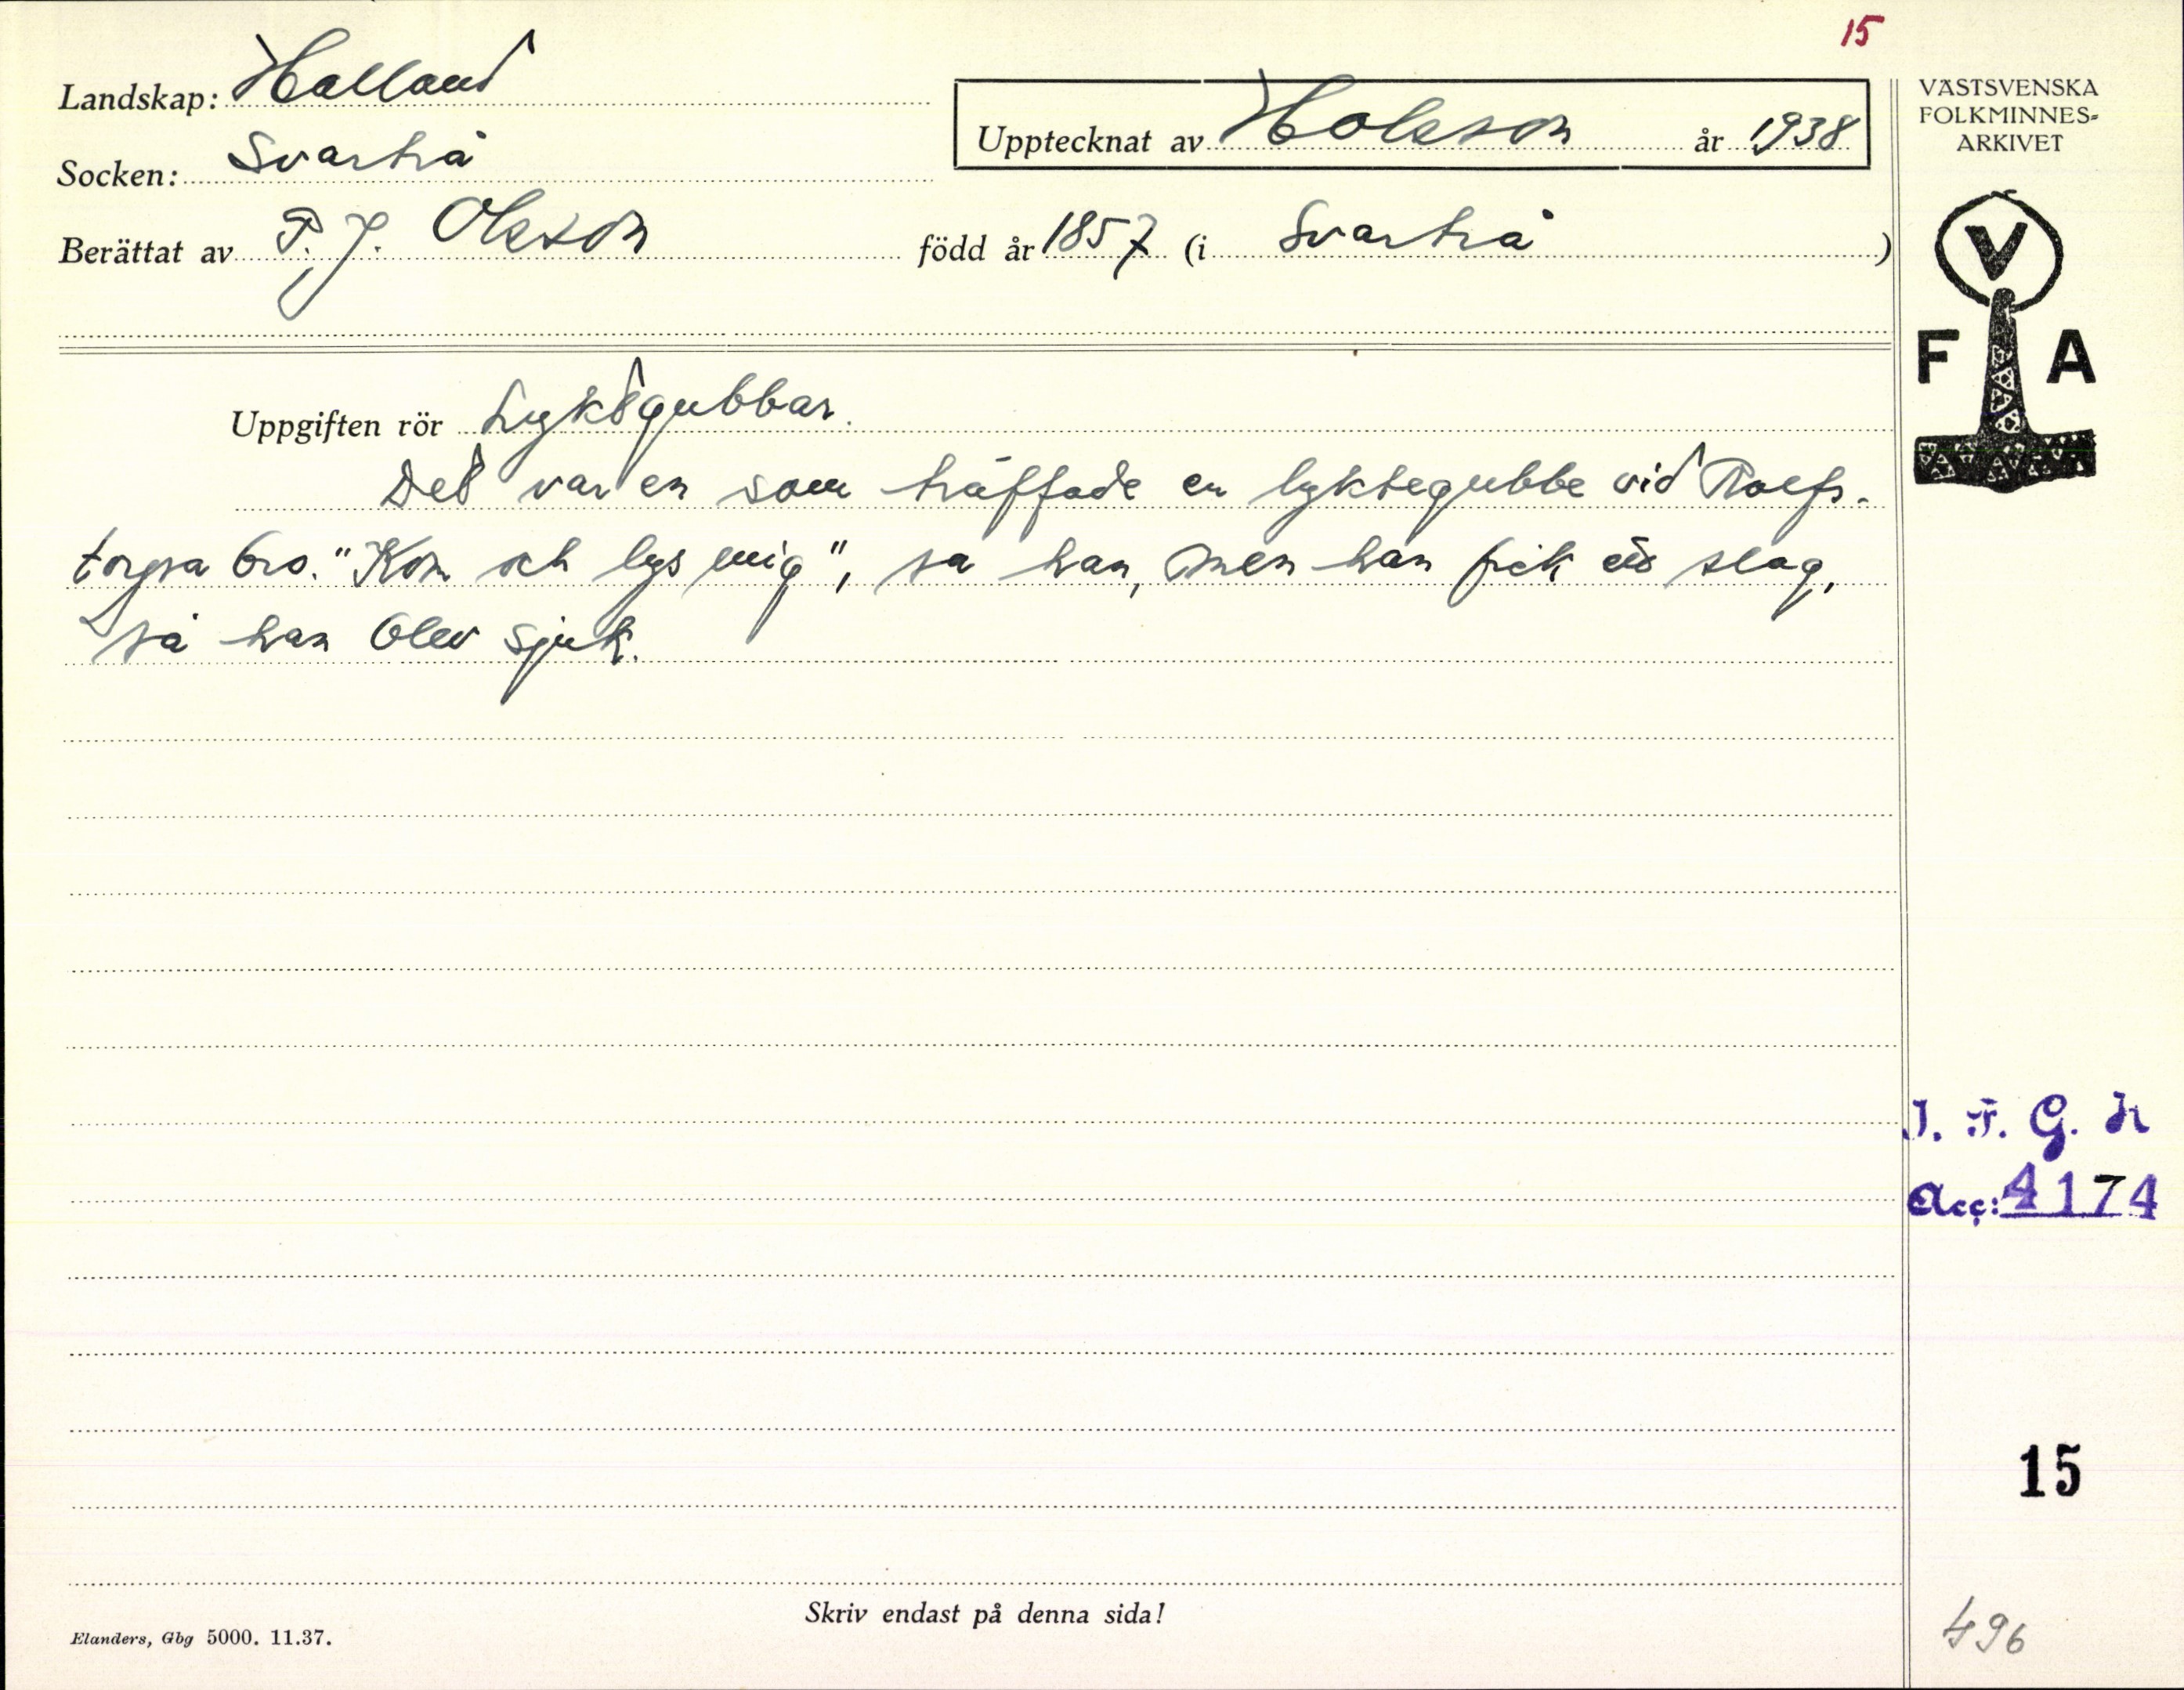 15
Landskap: Halland
Upptecknat av Holsson år 1938
Socken: Svartrå
Berättat av P. J. Olsson född år 1857 (i Svartrå)
VÄSTSVENSKA
FOLKMINNES-
ARKIVET
V
F A
Uppgiften rör Lyktgubbar.
Det var en som träffade en lyktegubbe vid Rolfs-
torpsa bro. "Kom och lys mig", sa han, men han fick ett slag,
så han blev sjuk.
I. F. G. H
Acc: 4174
15
Skriv endast på denna sida!
Elanders, Gbg 5000. 11.37.
496